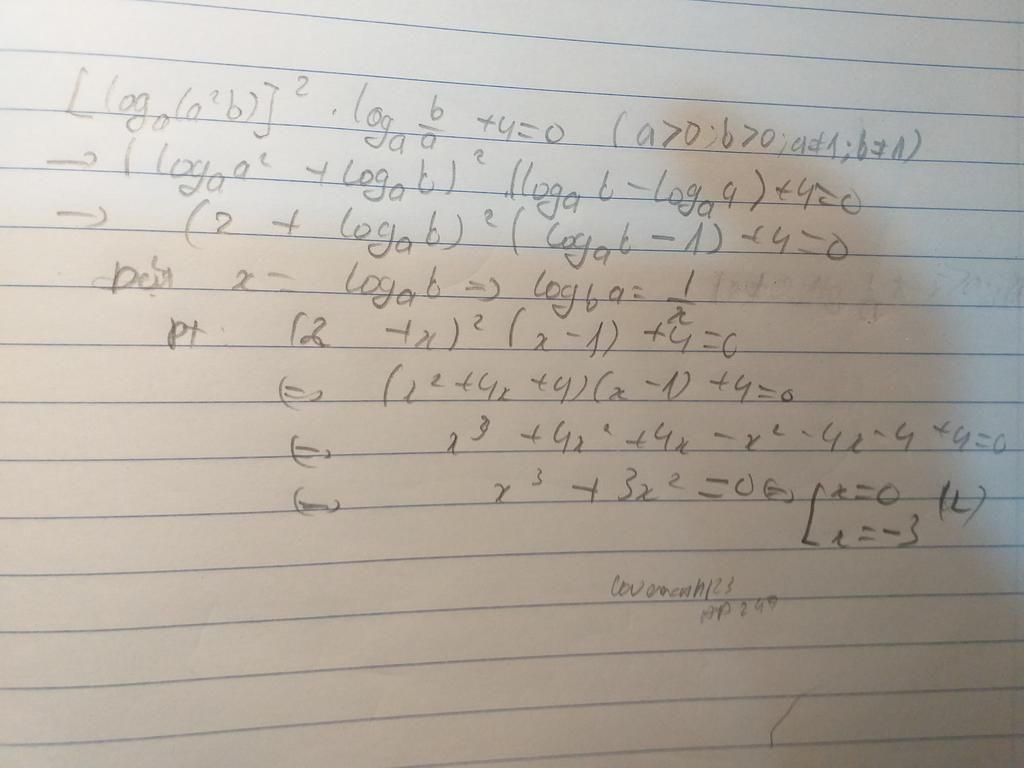 [log_a(a²b)]² . log_a b/a +4=0 (a>0; b>0; a≠1; b≠1)
→ (log_a a² + log_a b)² (log_a b - log_a a) +4=0
→ (2 + log_a b)² (log_a b - 1) +4=0
Đặt x = log_a b => log_b a = 1/x
pt (2 +x)² (x-1) +4=0
<=> (x²+4x+4)(x-1) +4=0
<=> x³ +4x² +4x -x² -4x -4 +4=0
<=> x³ + 3x² =0 <=> [x=0 (L)
x=-3